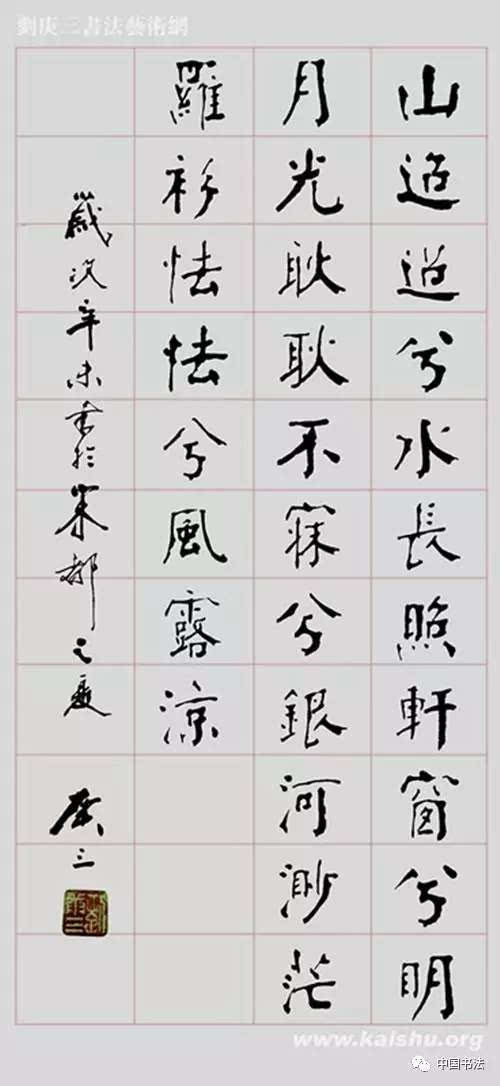 劉庚三書法藝術網
山迢迢兮水長照軒窗兮明
月光耿耿不寐兮銀河渺茫
羅衫怯怯兮風露涼
歲次辛未書於宋都之夏
庚三
劉庚三
www.kaishu.org
中国书法